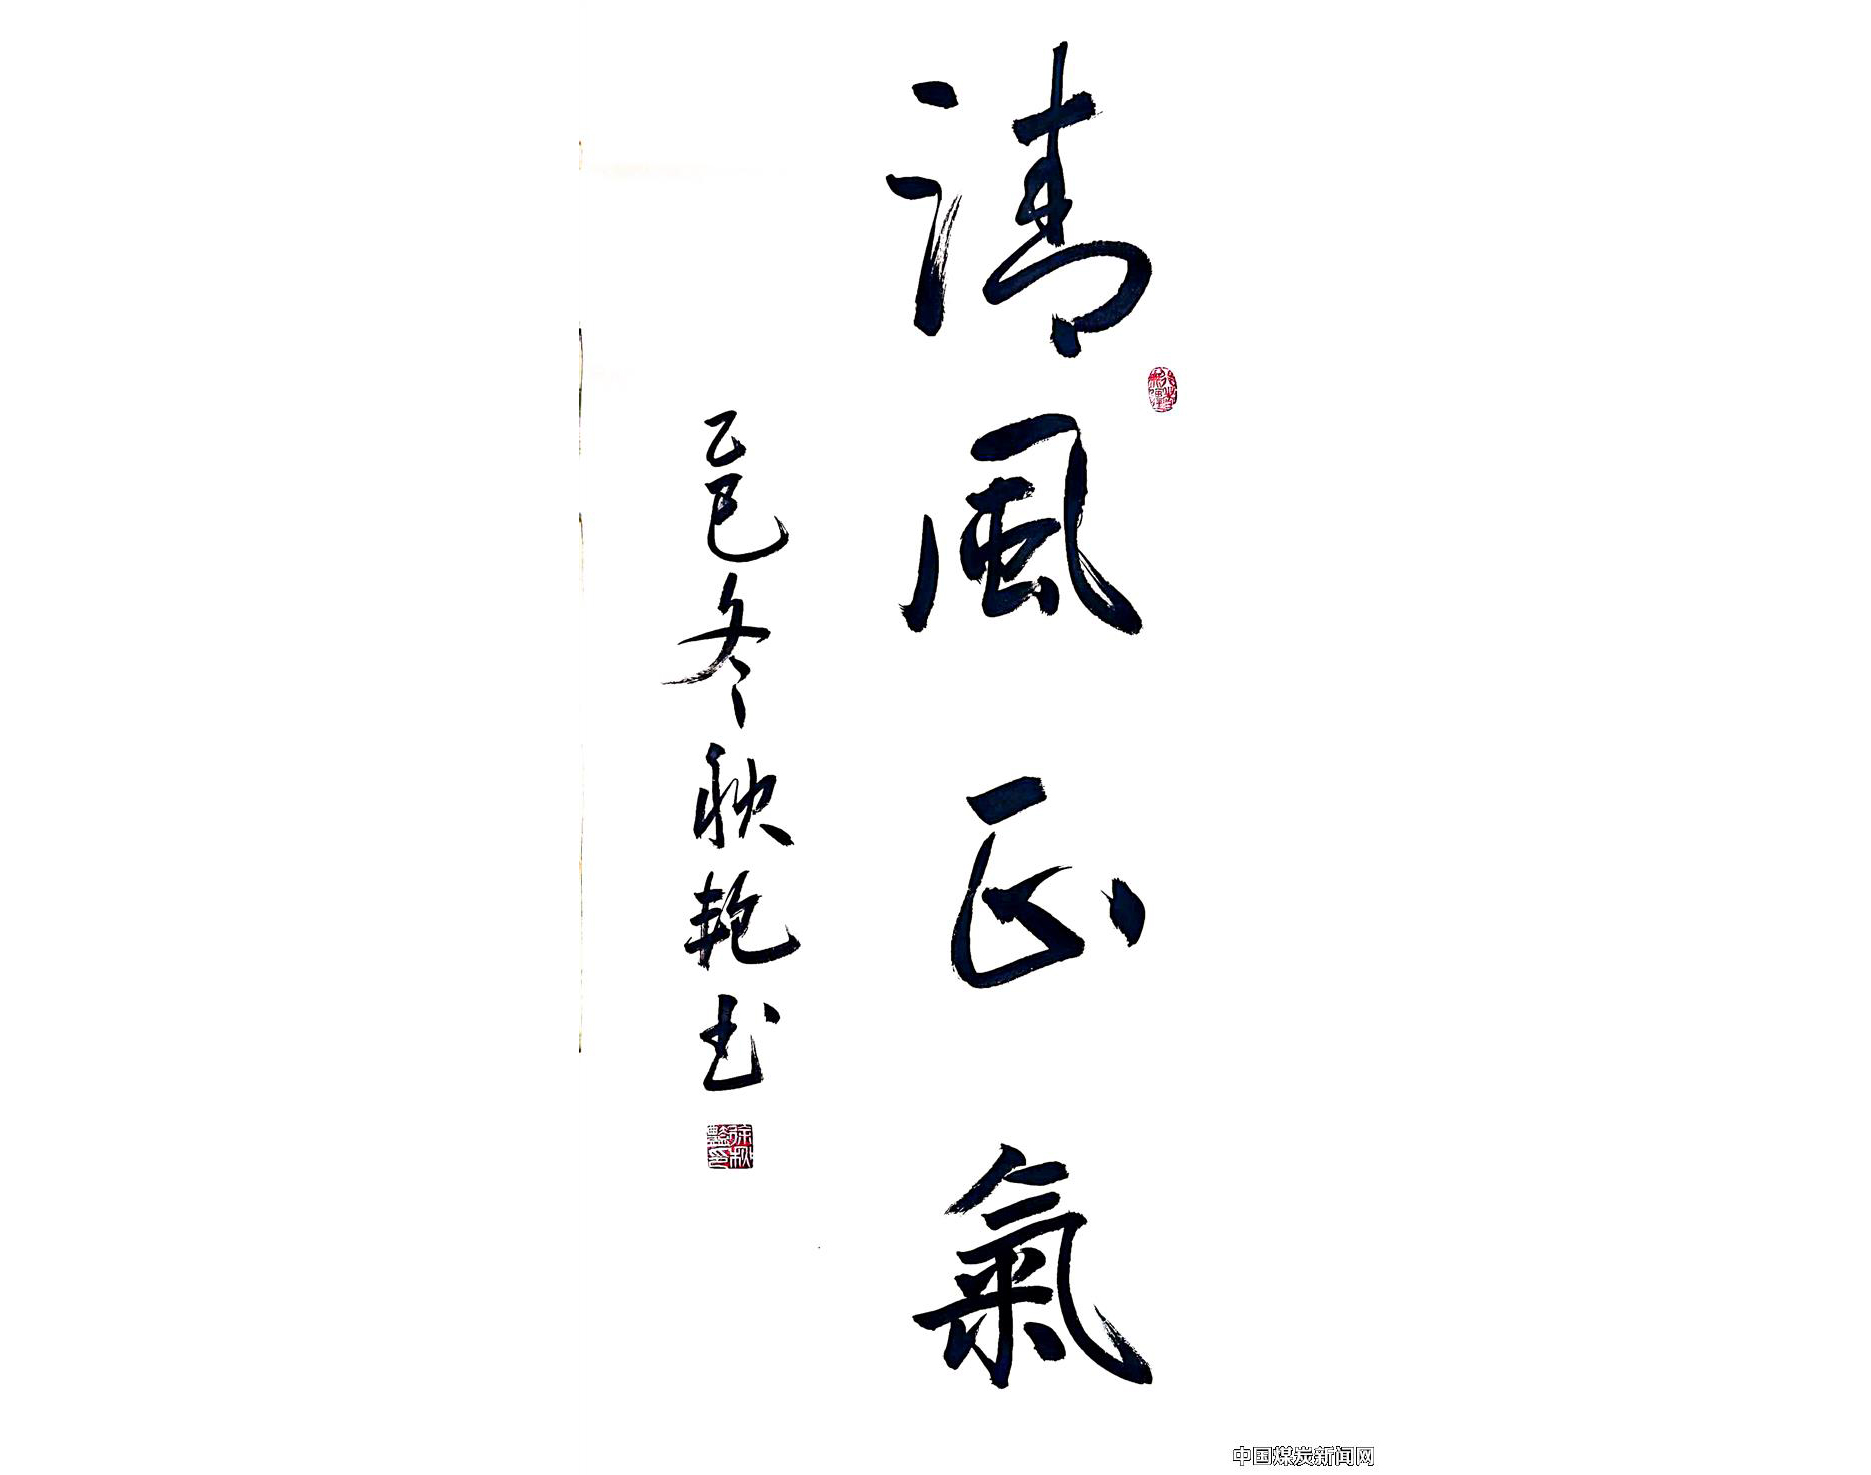 清風正氣
乙巳冬秋艳书
中国煤炭新闻网